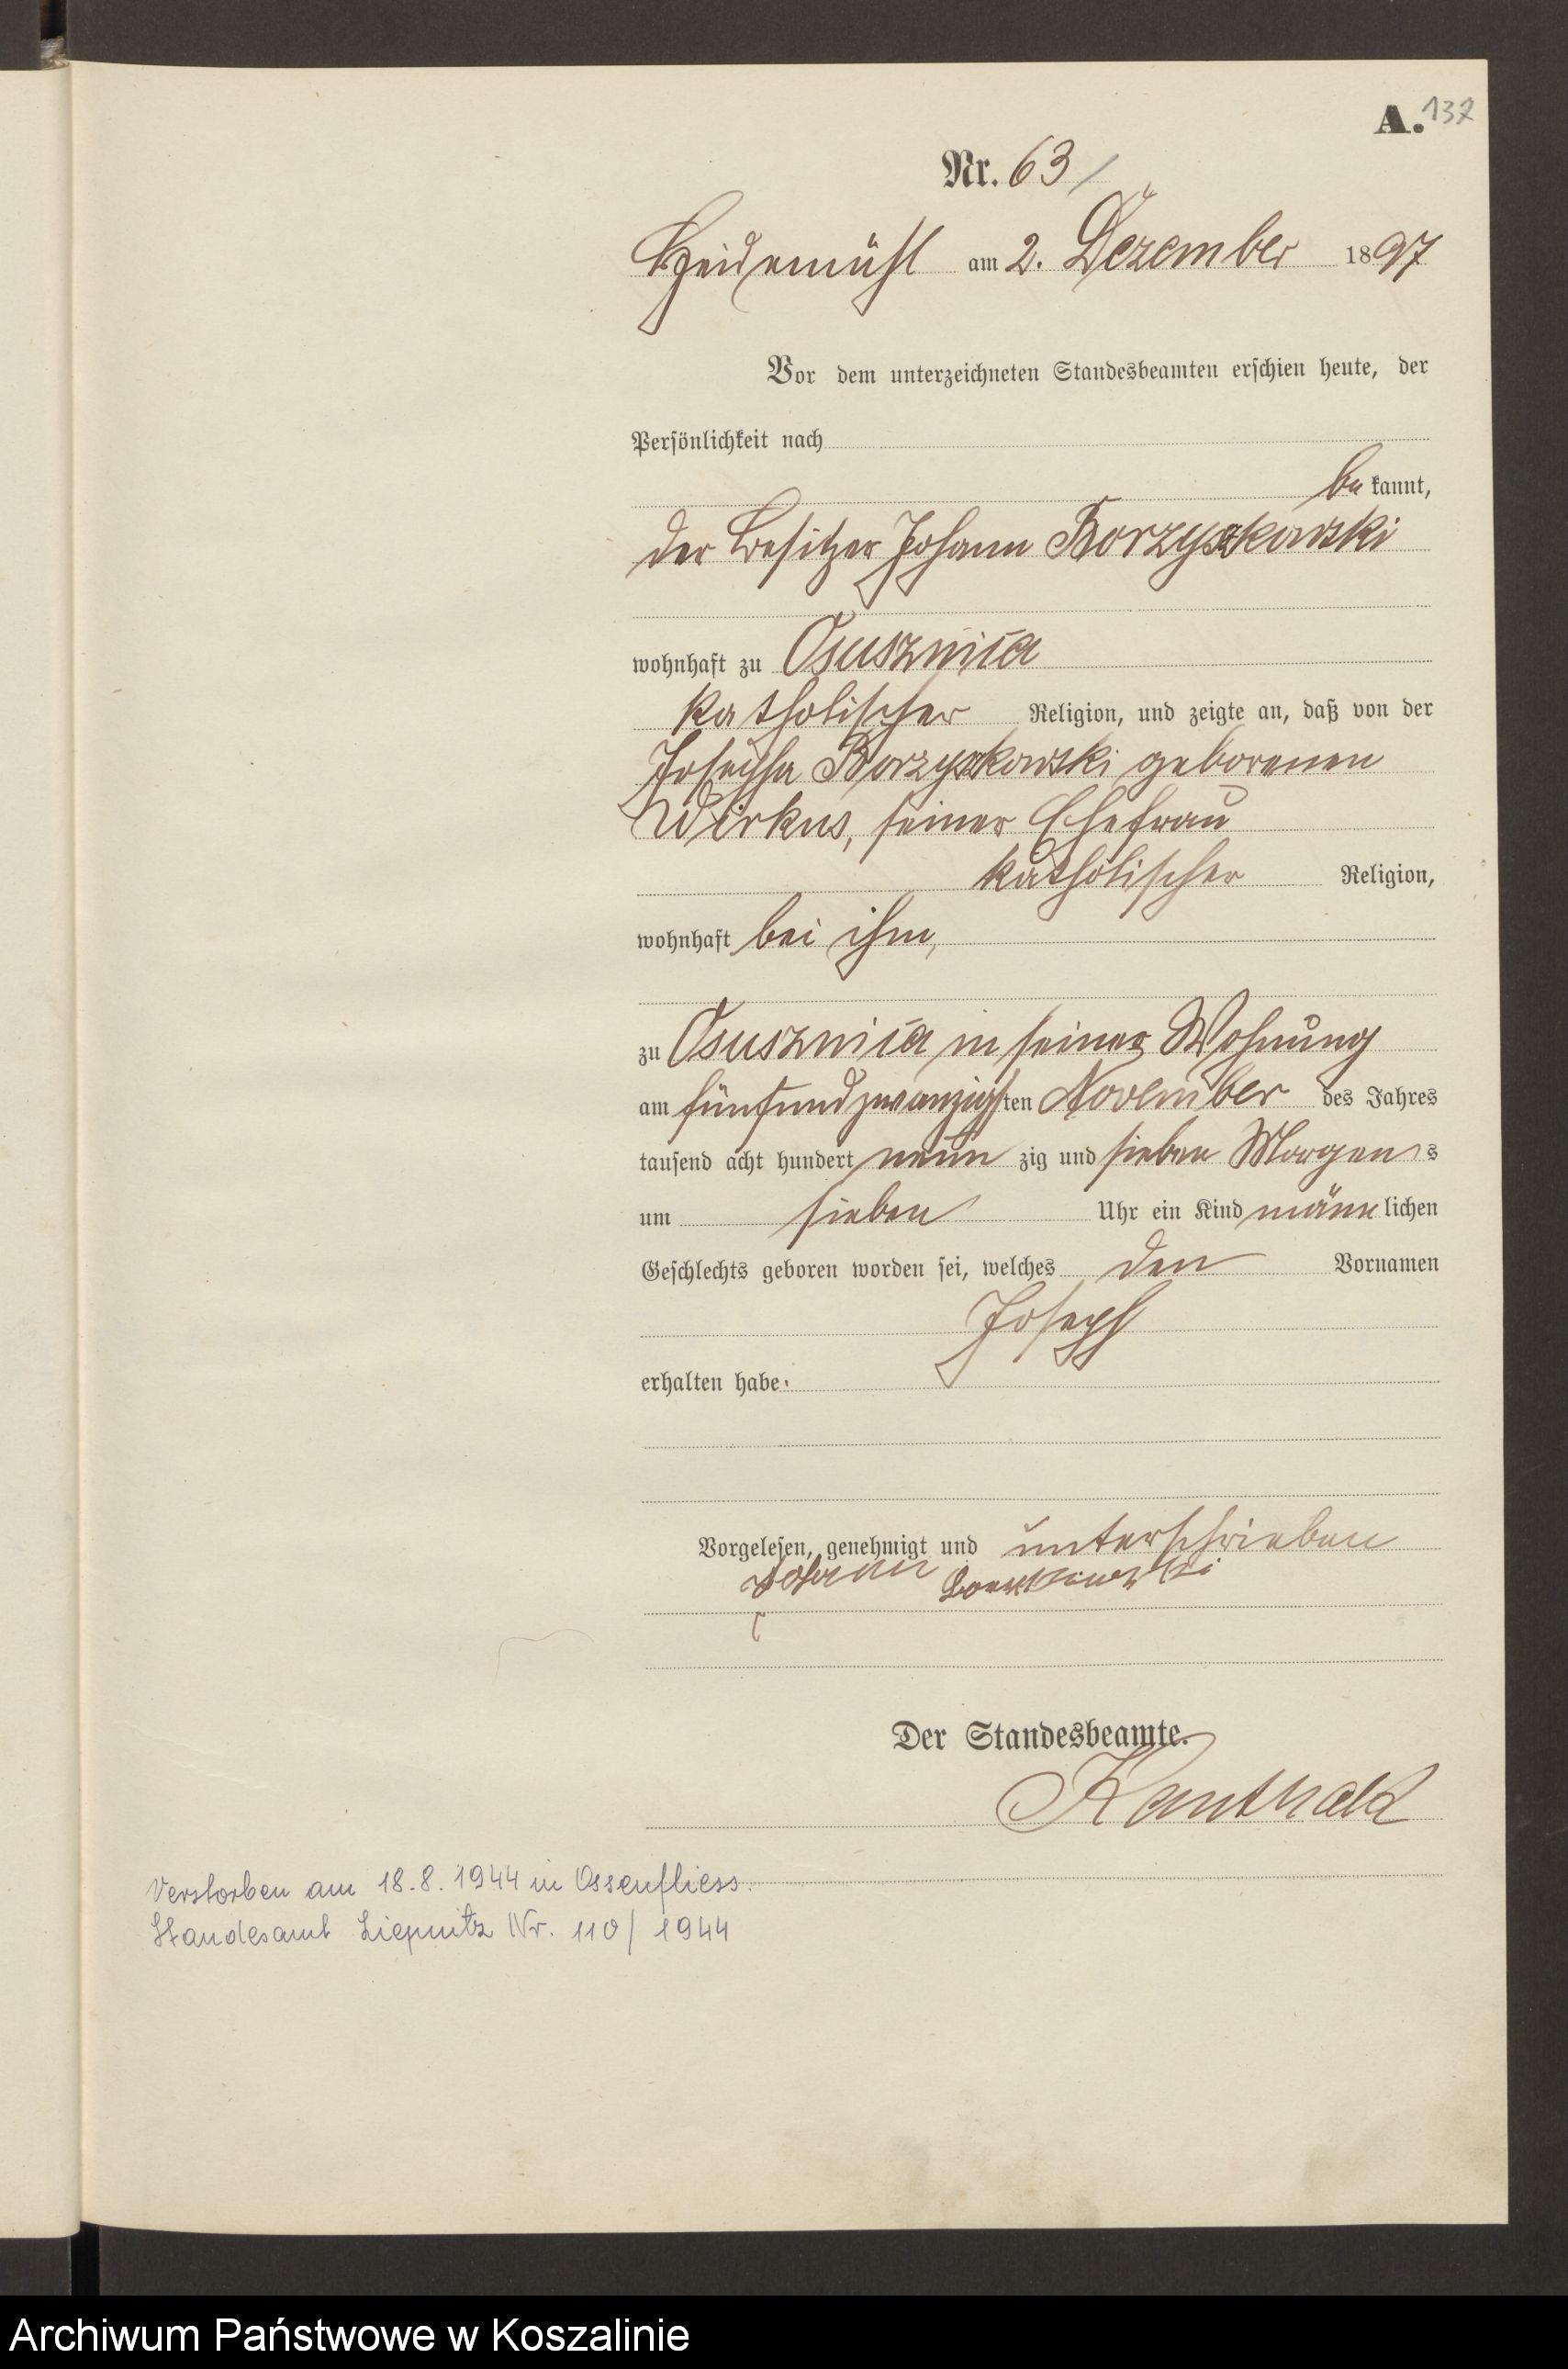 A. 132
Nr. 63
Heidemühl am 2. Dezember 1897
Vor dem unterzeichneten Standesbeamten erschien heute, der
Persönlichkeit nach
be kannt,
der Besitzer Johann Borzyszkowski
wohnhaft zu Osusznica
katholischer Religion, und zeigte an, daß von der
Josepha Borzyszkowski geborenen
Wirkus, seiner Ehefrau
katholischer Religion,
wohnhaft bei ihm,
zu Osusznica in seiner Wohnung
am fünfundzwanzigsten November des Jahres
tausend acht hundert neun zig und sieben Morgens
um sieben Uhr ein Kind männlichen
Geschlechts geboren worden sei, welches den Vornamen
Joseph
erhalten habe.
Vorgelesen, genehmigt und unterschrieben
Johann
Der Standesbeamte.
Kanthack
Verstorben am 18.8.1944 in Ossenfliess.
Standesamt Liepnitz Nr. 110/1944
Archiwum Państwowe w Koszalinie